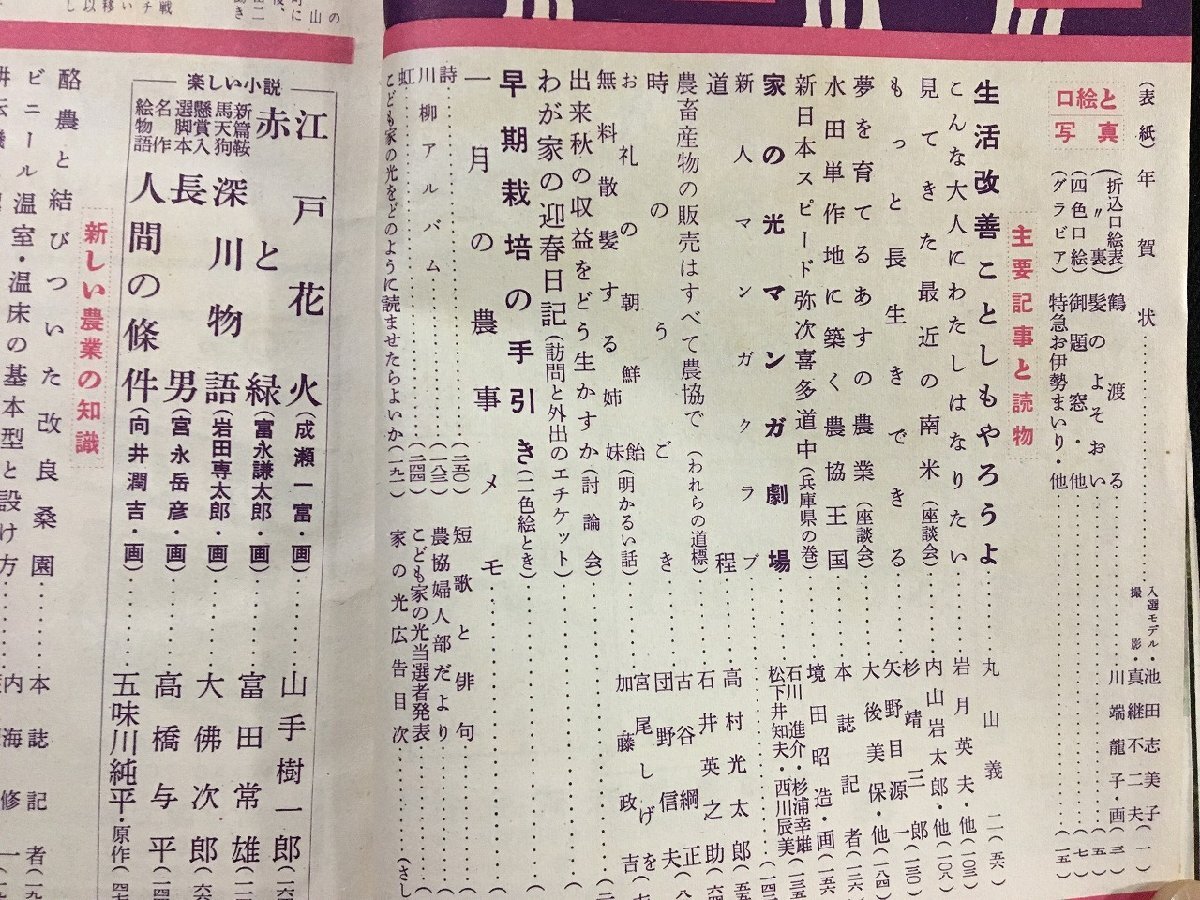 口絵と
写真
(表紙) 年賀状
入選モデル・池田志美子
撮影・真継不二夫 (一)
(折込口絵表) 鶴渡る 川端龍子・画
(〃裏) 髪のよそおい (五)
(四色口絵) 御題窓・他 (七)
(グラビア) 特急お伊勢まいり・他 (一五)
主要記事と読物
生活改善ことしもやろうよ 丸山義二 (五六)
こんな大人にわたしはなりたい 岩月英夫・他 (一〇三)
見てきた最近の南米 (座談会) 内山岩太郎・他 (一〇八)
もっと長生きできる 杉靖三郎 (一三〇)
矢野目源一
夢を育てるあすの農業 (座談会) 大後美保・他 (一八四)
水田単作地に築く農協王国 本誌記者 (一二六)
新日本スピード弥次喜多道中 (兵庫県の巻) 境田昭造・画 (一五六)
家の光マンガ劇場 石川進介・杉浦幸雄
松下井知夫・西川辰美 (一三五)
新人マンガクラブ (一四二)
道程 高村光太郎 (五五)
農畜産物の販売はすべて農協で (われらの道標) 石井英之助 (六四)
時のうごき 古谷綱正
団野信夫
お礼の朝鮮飴 (明かるい話) 宮尾しげを
無料散髪する姉妹 加藤政吉
出来秋の収益をどう生かすか (討論会)
わが家の迎春日記 (訪問と外出のエチケット)
早期栽培の手引き (二色絵とき)
一月の農事メモ
詩 (二五〇)
川柳アルバム (一八三)
虹 (二四四)
こども家の光をどのように読ませたらよいか (一九一)
短歌と俳句
農協婦人部だより
こども家の光当選者発表
家の光広告目次 (さし
楽しい小説
江戸花火 (成瀬一富・画) 山手樹一郎
赤と緑 (富永謙太郎・画) 富田常雄
新篇鞍馬天狗 深川物語 (岩田専太郎・画) 大佛次郎
懸賞入選脚本 長男 (宮永岳彦・画) 高橋与平
名作絵物語 人間の條件 (向井潤吉・画) 五味川純平・原作
新しい農業の知識
酪農と結びついた改良桑園 本誌記者
ビニール温室・温床の基本型と設け方 内海修一